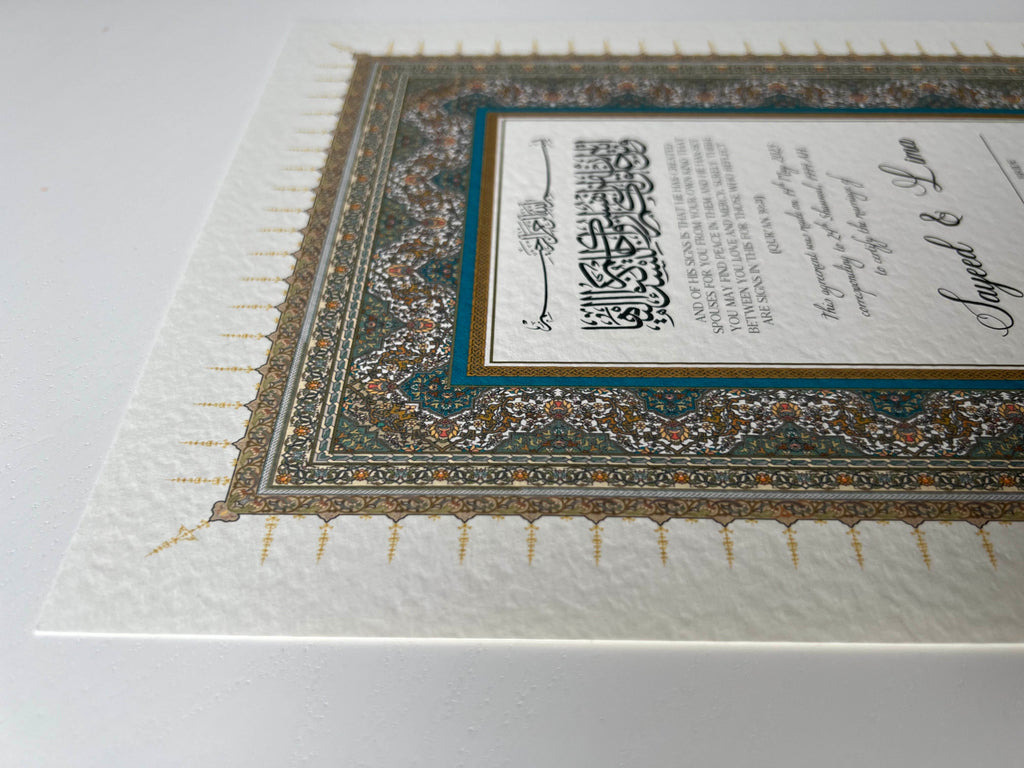 بسم الله الرحمن الرحيم
AND OF HIS SIGNS IS THAT HE HAS CREATED
SPOUSES FOR YOU FROM YOUR OWN KIND THAT
YOU MAY FIND PEACE IN THEM. AND HE HAS SET
BETWEEN YOU LOVE AND MERCY. SURELY THERE
ARE SIGNS IN THIS FOR THOSE WHO REFLECT
(QUR'AN 30:21)
This agreement was made on 19th May 2023
corresponding to 29th Shawwal, 1444 AH
to certify the marriage of
Sayeed & Lima